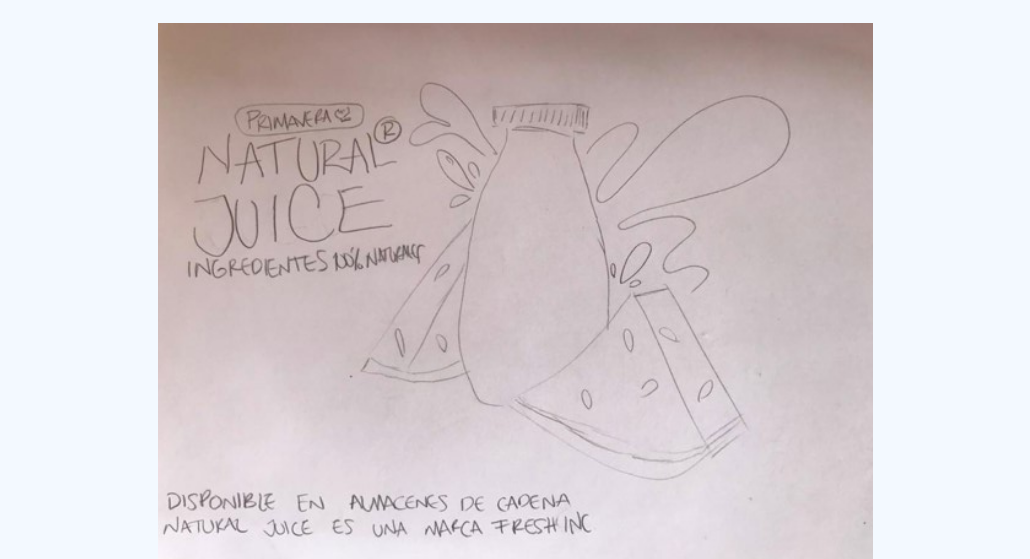 PRIMAVERA
NATURAL®
JUICE
INGREDIENTES 100% NATURALES
DISPONIBLE EN ALMACENES DE CADENA
NATURAL JUICE ES UNA MARCA FRESH INC